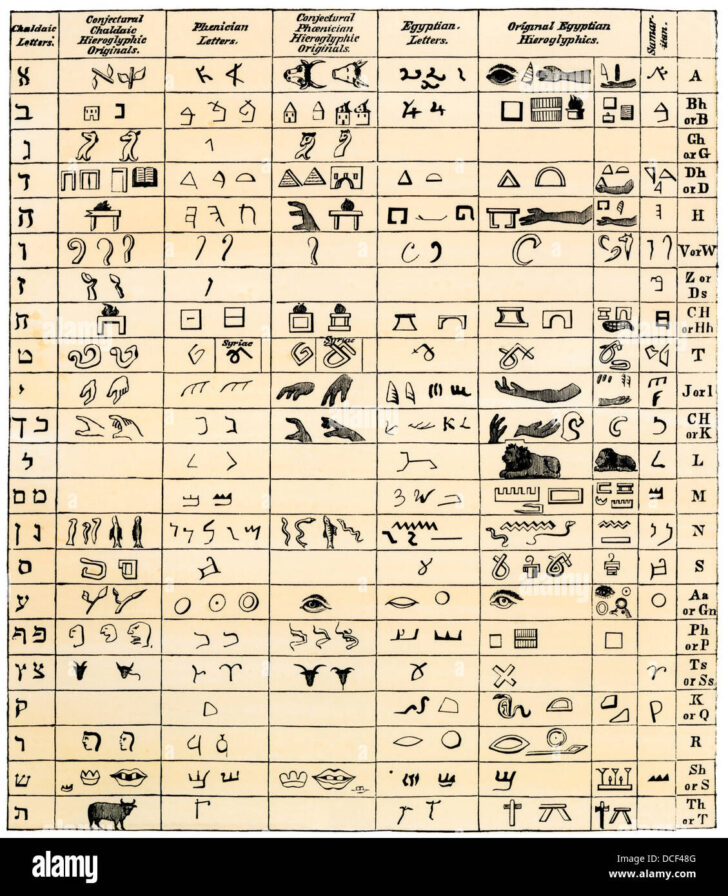 Chaldaic
Letters.
Conjectural
Chaldaic
Hieroglyphic
Originals.
Phœnician
Letters.
Conjectural
Phœnician
Hieroglyphic
Originals.
Egyptian.
Letters.
Original Egyptian
Hieroglyphics.
Samar-
itan.
א A
ב Bh
or B
ג Gh
or G
ד Dh
or D
ה H
ו V or W
ז Z or
Ds
ח CH
or Hh
ט Syriac Syriac T
י J or I
כ ך CH
or K
ל L
מ ם M
נ ן N
ס S
ע Aa
or Gn
פ ף Ph
or P
צ ץ Ts
or Ss
ק K
or Q
ר R
ש Sh
or S
ת Th
or T
alamy
Image ID: DCF48G
www.alamy.com